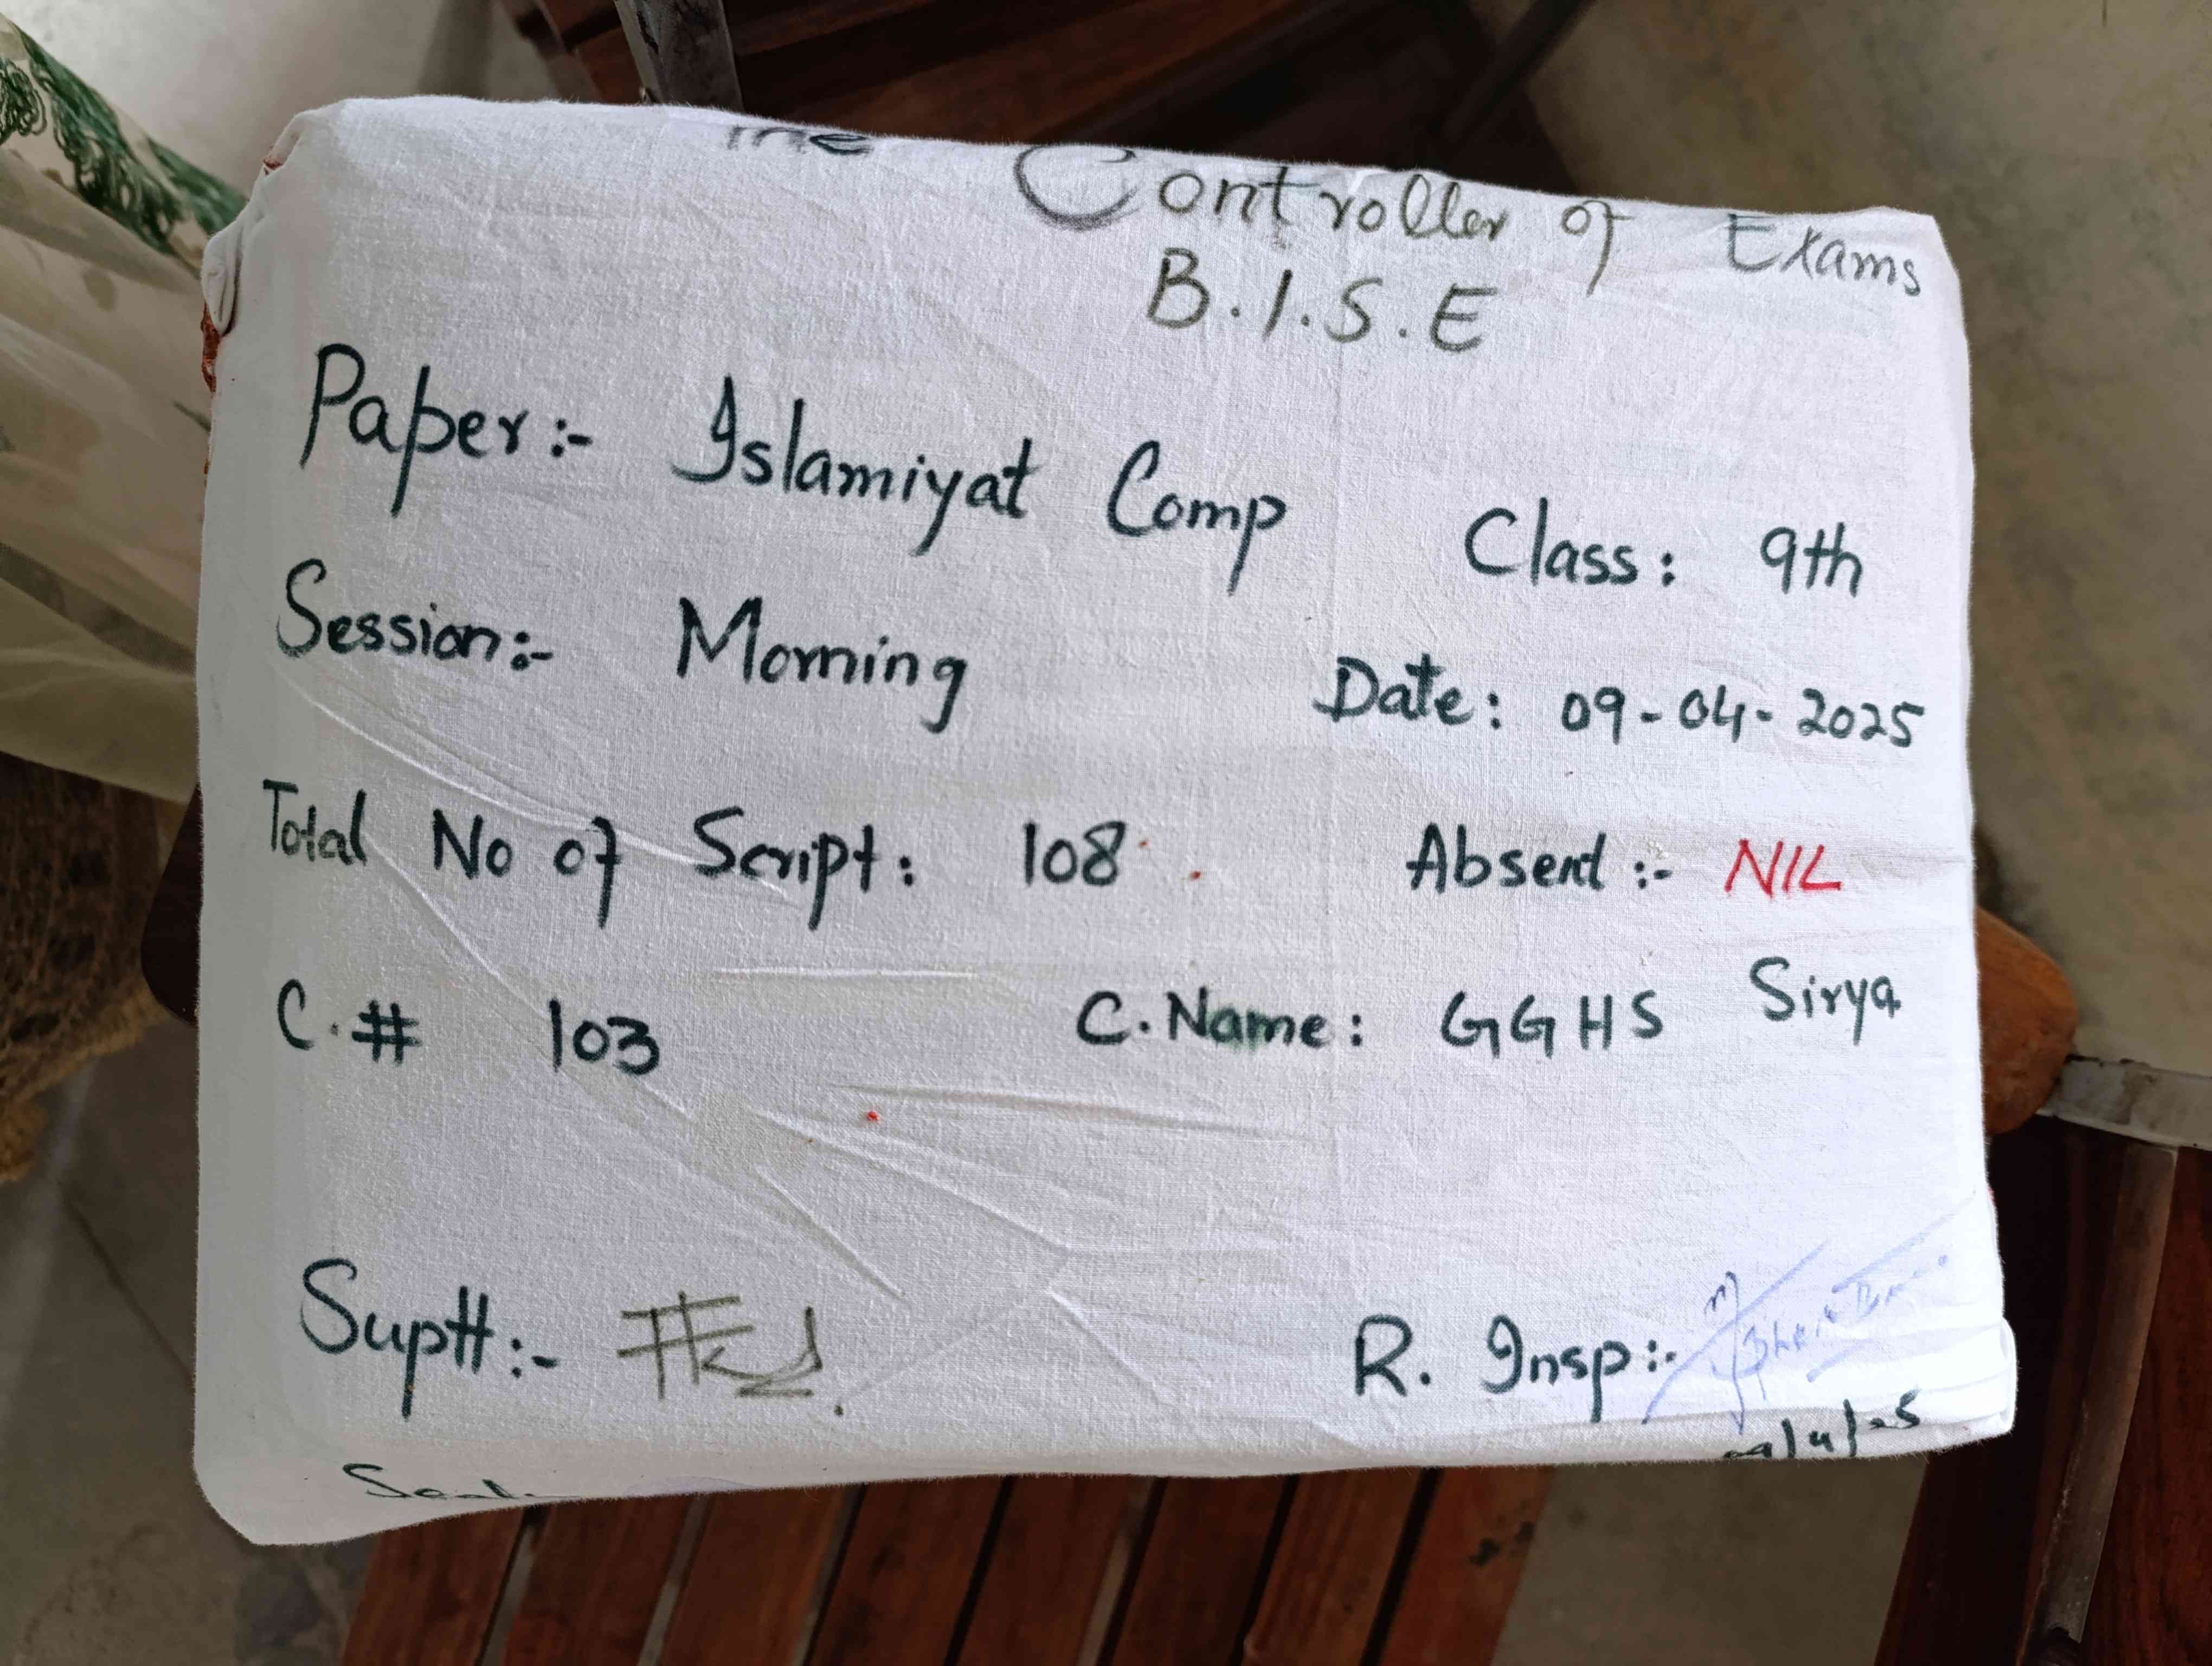 The Controller of Exams
B.I.S.E
Paper:- Islamiyat Comp Class: 9th
Session:- Morning Date: 09-04-2025
Total No of Script: 108 Absent:- NIL
C.# 103 C.Name: GGHS Sirya
Suptt:- R. Insp:-